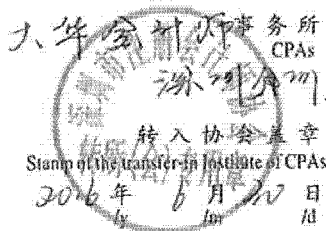 大华会计师事务所
CPAs
深圳分所
转入协会盖章
Stamp of the transfer-in Institute of CPAs
2016年6月30日
/y /m /d